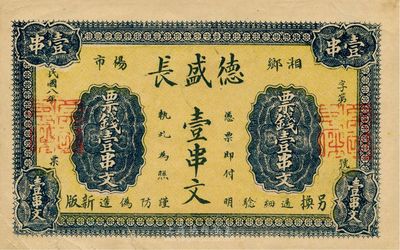 壹串
壹串
湘鄉
楊市
德盛長
字第
號
民國八年
票
憑票即付
壹串文
執此為照
票錢壹串文
票錢壹串文
壹串文
壹串文
另換新版
謹防偽造
細驗明